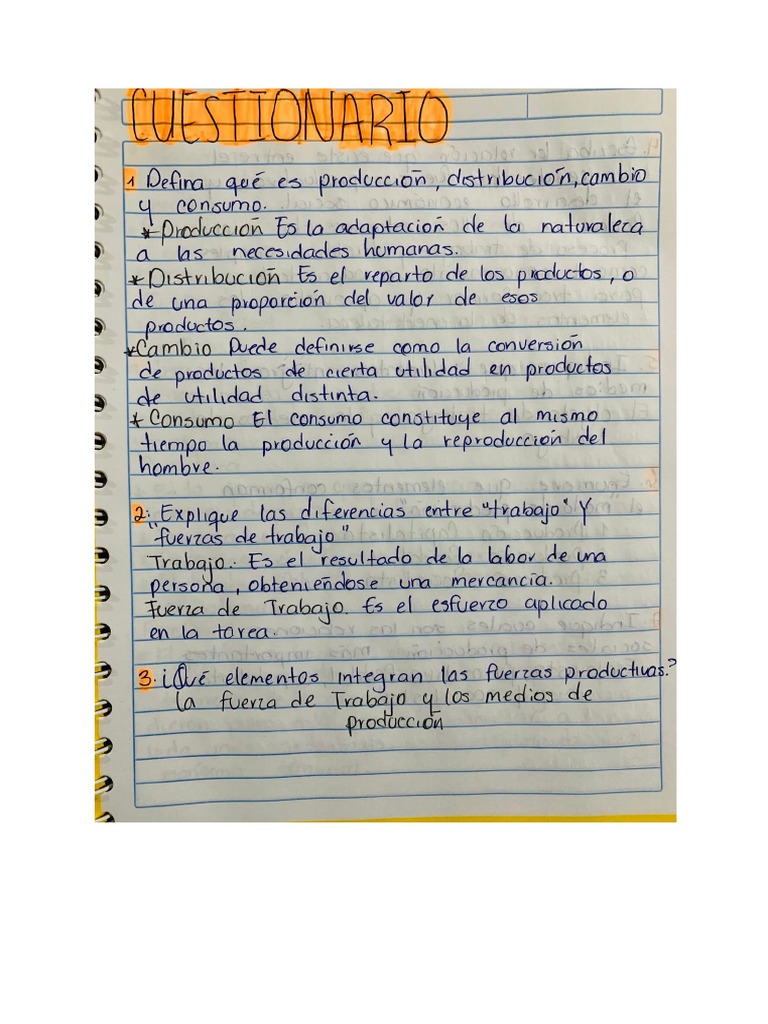 CUESTIONARIO
1 Defina qué es producción, distribución, cambio
y consumo.
* Producción Es la adaptación de la naturaleca
a las necesidades humanas.
* Distribución Es el reparto de los productos, o
de una proporción del valor de esos
productos.
* Cambio Puede definirse como la conversión
de productos de cierta utilidad en productos
de utilidad distinta.
* Consumo El consumo constituye al mismo
tiempo la producción y la reproducción del
hombre.
2: Explique las diferencias entre "trabajo" Y
"fuerzas de trabajo"
Trabajo. Es el resultado de la labor de una
persona, obteniéndose una mercancía.
Fuerza de Trabajo. Es el esfuerzo aplicado
en la tarea.
3. ¿Qué elementos integran las fuerzas productivas.?
La fuerza de Trabajo y los medios de
Producción